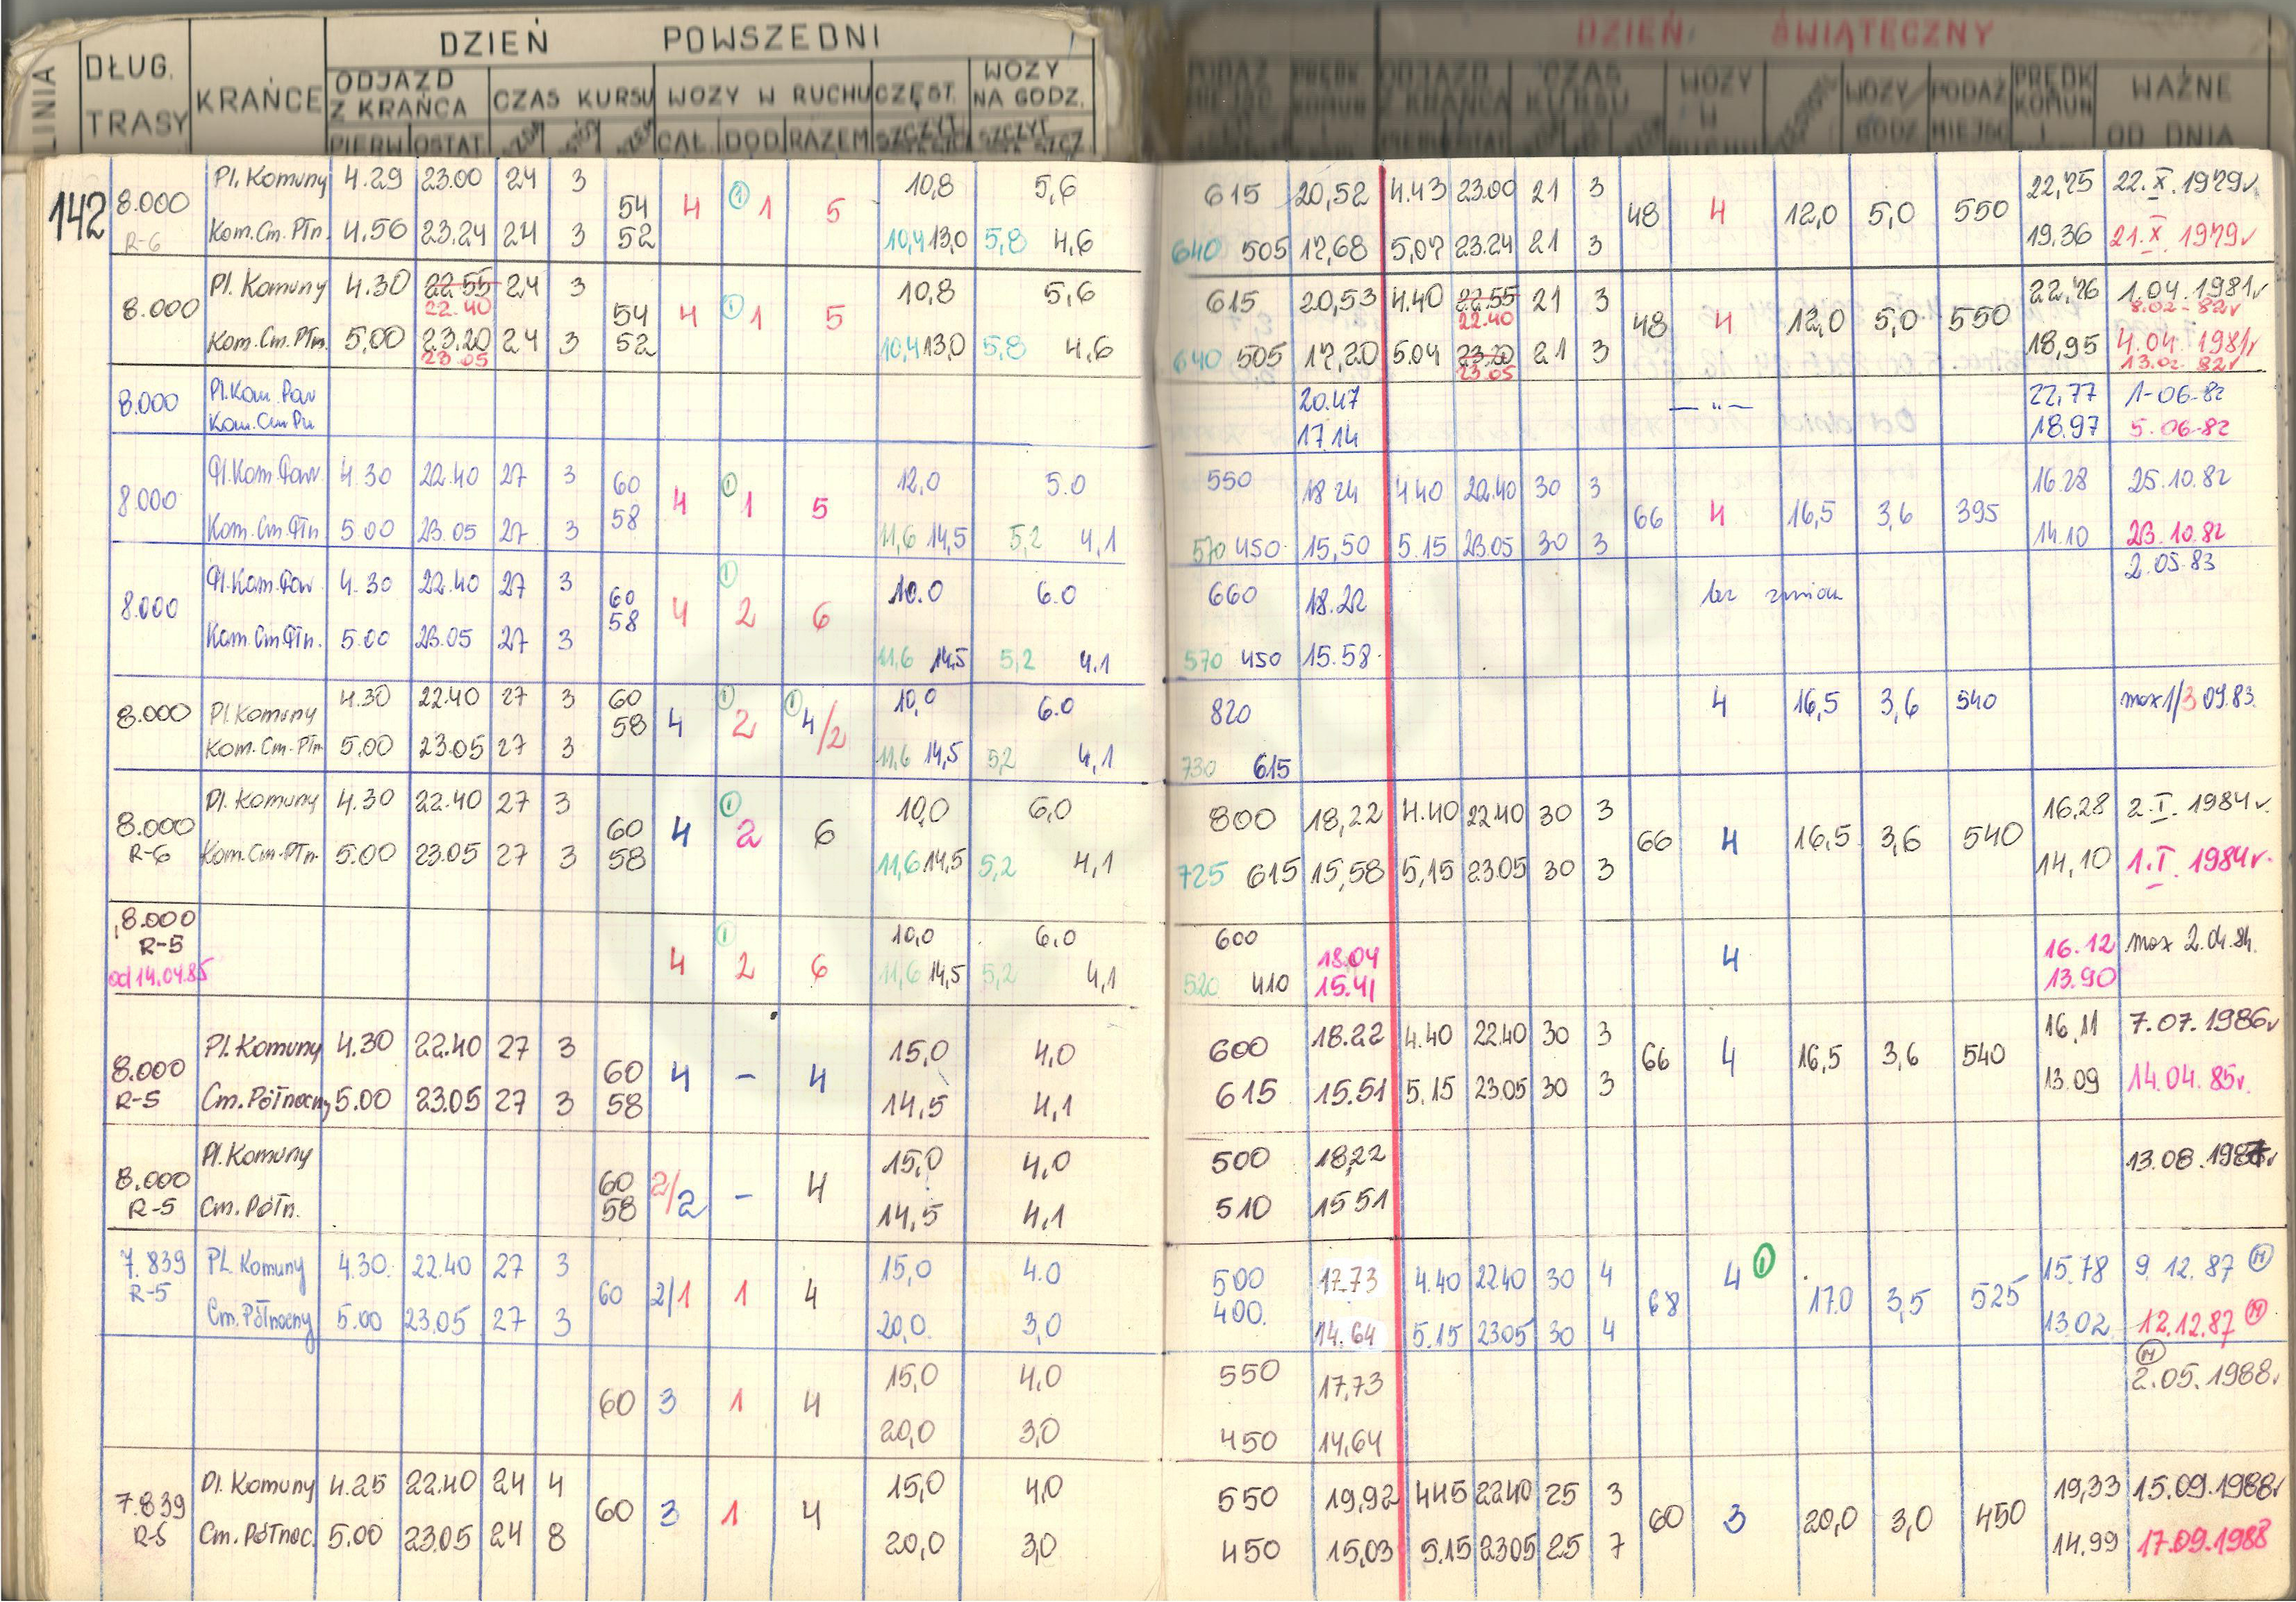 DZIEŃ POWSZEDNI
DZIEŃ ŚWIĄTECZNY
LINIA DŁUG. TRASY KRAŃCE ODJAZD Z KRAŃCA CZAS KURSU WOZY W RUCHU CZĘST. WOZY NA GODZ.
PIERW OSTAT CAŁ. DOD RAZEM SZCZYT SZCZYT
PODAŻ MIEJSC PRĘDK KOMUN ODJAZD Z KRAŃCA CZAS KURSU WOZY W RUCHU WOZY/GODZ PODAŻ MIEJSC PRĘDK KOMUN WAŻNE OD DNIA
142 8.000 Pl. Komuny 4.29 23.00 24 3 54 4 1 1 5 10,8 5,6 615 20,52 4.43 23.00 21 3 48 4 12,0 5,0 550 22,75 22.X.1979r.
R-6 Kom.Cm.Płn. 4.56 23.24 24 3 52 10,4 13,0 5,8 4,6 640 505 17,68 5,07 23.24 21 3 19,36 21.X.1979r
8.000 Pl. Komuny 4.30 22.55 24 3 54 4 1 1 5 10,8 5,6 615 20,53 4.40 22.55 21 3 48 4 12,0 5,0 550 22,76 1.04.1981r
22.40 22.40 8.02-82r
Kom.Cm.Płn. 5,00 23.20 24 3 52 10,4 13,0 5,8 4,6 640 505 17,20 5.04 23.20 21 3 18,95 4.04.1981r
23.05 23.05 13.02.82r
8.000 Pl.Kom.Par 20.47 — " — 22,77 1-06-82
Kom.Cm.Pn 17.14 18.97 5.06-82
8.000 Pl.Kom.Par 4.30 22.40 27 3 60 4 1 1 5 12,0 5.0 550 18 24 4 40 22.40 30 3 66 4 16,5 3,6 395 16.28 25.10.82
Kom.Cm.Płn 5.00 23.05 27 3 58 11,6 14,5 5,2 4,1 570 450 15,50 5.15 23.05 30 3 14.10 23.10.82
8.000 Pl.Kom.Par 4.30 22.40 27 3 60 4 1 2 6 10.0 6.0 660 18.22 bez zmian 2.05.83
Kom.Cm.Płn. 5.00 23.05 27 3 58 11,6 14,5 5,2 4.1 570 450 15.58
8.000 Pl. Komuny 4.30 22.40 27 3 60 4 1 2 1 4/2 10,0 6.0 820 4 16,5 3,6 540 max 1/3 09.83.
Kom.Cm.Płn 5.00 23.05 27 3 58 11,6 14,5 5,2 4,1 730 615
8.000 Pl. Komuny 4.30 22.40 27 3 60 4 1 2 6 10,0 6,0 800 18,22 4.40 22.40 30 3 66 4 16,5 3,6 540 16,28 2.I.1984r.
R-6 Kom.Cm.Płn. 5.00 23.05 27 3 58 11,6 14,5 5,2 4,1 725 615 15,58 5,15 23.05 30 3 14,10 1.I.1984r.
8.000 4 1 2 6 10,0 6,0 600 18.04 4 16.12 max 2.04.84.
R-5 11,6 14,5 5,2 4,1 520 410 15.41 13.90
od 14.04.85
8.000 Pl. Komuny 4.30 22.40 27 3 60 4 – 4 15,0 4,0 600 18.22 4.40 22.40 30 3 66 4 16,5 3,6 540 16,11 7.07.1986r
R-5 Cm.Północny 5.00 23.05 27 3 58 14,5 4,1 615 15.51 5,15 23.05 30 3 13.09 14.04.85r.
8.000 Pl. Komuny 60 2/2 – 4 15,0 4,0 500 18,22 13.08.1987r
R-5 Cm. Półn. 58 14,5 4,1 510 15 51
7.839 Pl. Komuny 4.30. 22.40 27 3 60 2/1 1 4 15,0 4.0 500 17.73 4.40 22.40 30 4 68 4 1 17.0 3,5 525 15.78 9.12.87 M
R-5 Cm. Północny 5.00 23.05 27 3 20,0 3,0 400. 14.64 5.15 23.05 30 4 13.02 12.12.87 M
60 3 1 4 15,0 4,0 550 17,73 M 2.05.1988r
20,0 3,0 450 14,64
7.839 Pl. Komuny 4.25 22.40 24 4 60 3 1 4 15,0 4,0 550 19,92 4.45 22.40 25 3 60 3 20,0 3,0 450 19,33 15.09.1988r
R-5 Cm. Północ. 5.00 23.05 24 8 20,0 3,0 450 15,03 5.15 23.05 25 7 14.99 17.09.1988